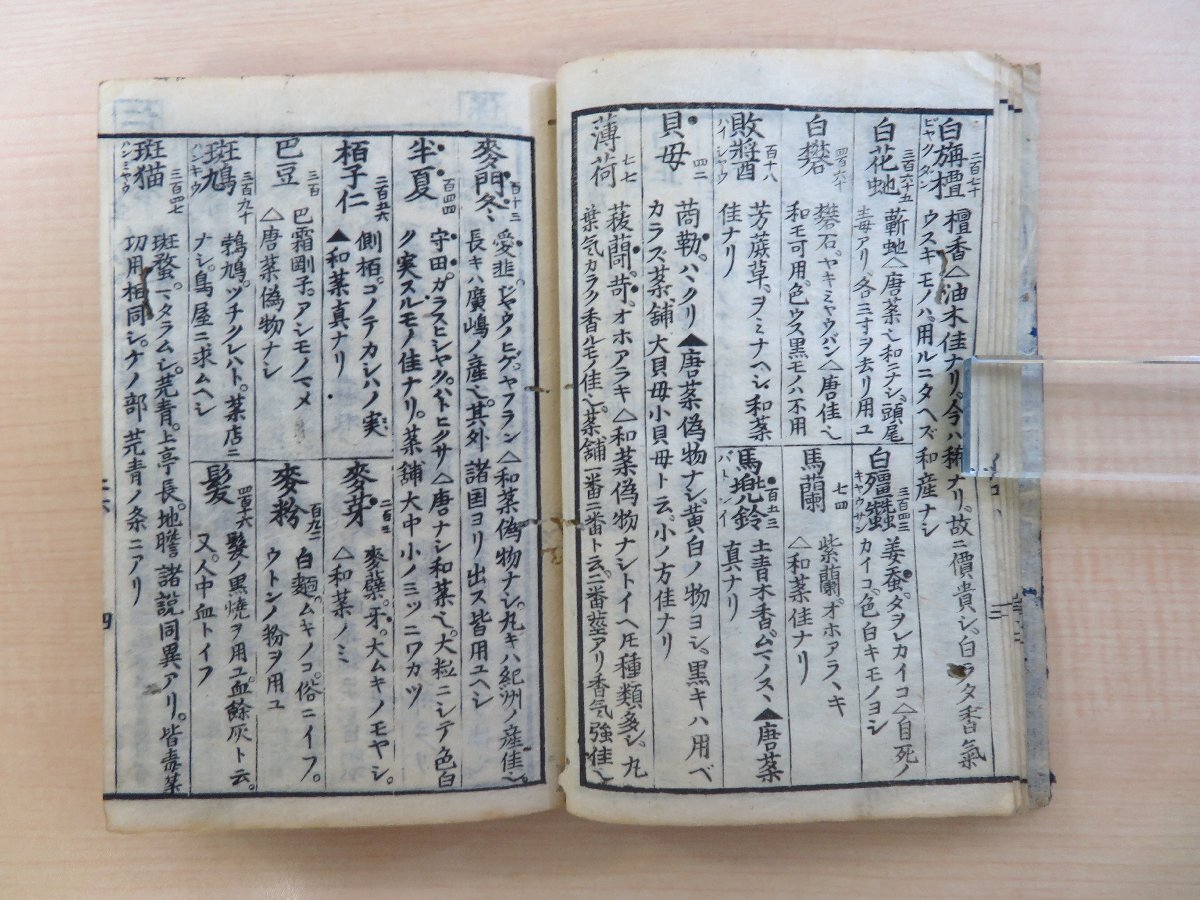 白旃檀 二百七十 ビヤクダン 檀香△油木佳ナリ。今ハ稀ナリ。故ニ價貴シ。白ラタ香氣
ウスキモノハ用ルニタヘズ和産ナシ
白花虵 三百六十五 蘄虵△唐菜也和ニナシ。頭尾
毒アリ各三寸ヲ去リ用ユ
白殭蠶 三百四三 キヤウサン 姜蚕。タヲレカイコ△自死ノ
カイコ。色白キモノヨシ
白礬 四百六十 礬石。ヤキミヤウバン△唐佳也
和モ可用。色ウス黒モノハ不用
馬蘭 七四 紫蘭。オホアラヽキ
△和菜佳ナリ
敗醬 百十八 ハイシヤウ 芳蕨草。ヲミナヘシ和菜
佳ナリ
馬兜鈴 百五三 バトレイ 土青木香。ムマノスヽ▲唐菜
真ナリ
貝母 四二 茼勒。ハヽクリ▲唐菜偽物ナシ。黄白ノ物ヨシ。黒キハ用ベ
カラス菜舖大貝母小貝母ト云。小ノ方佳ナリ
薄荷 七七 菝䕞苛。オホアラキ△和菜偽物ナシトイヘ𪜈種類多シ。丸
葉気カラク香ルモノ佳也。菜舖一番二番ト云。二番莖アリ香気強佳也
麥門冬 百十三 愛韭。ジヤウノヒゲ。ヤフラン△和菜偽物ナシ。丸キハ紀州ノ産佳也
長キハ廣嶋ノ産也。其外諸国ヨリ出ス皆用ユヘシ
半夏 百四四 守田。カラスヒシヤク。ハトヒクサ△唐ナシ和菜也。大粒ニシテ色白
ク実スルモノ佳ナリ。菜舖大中小ノ三ツニワカツ
栢子仁 二百五六 側栢。コノテカシハノ実
▲和菜真ナリ
麥芽 麥蘗。牙。大ムキノモヤシ。
△和菜ノミ
巴豆 三百 巴霜剛子。アシモノマメ
△唐菜偽物ナシ
麥粉 百九二 白麵。ムキノコ。俗ニイフ。
ウトンノ粉ヲ用ユ
斑鳩 三百九十 ハンキウ 鵓鳩。ツチクレハト。菜店ニ
ナシ。鳥屋ニ求ムヘシ
髪 四百六 髮ノ黒燒ヲ用ユ。血餘灰ト云。
又。人中血トイフ
斑猫 三百四七 ハンミヤウ 斑蝥。マタラムシ。芫青。上亭長。地膽諸説同異アリ。皆毒菜
功用相同シ。ケノ部芫青ノ条ニアリ
四